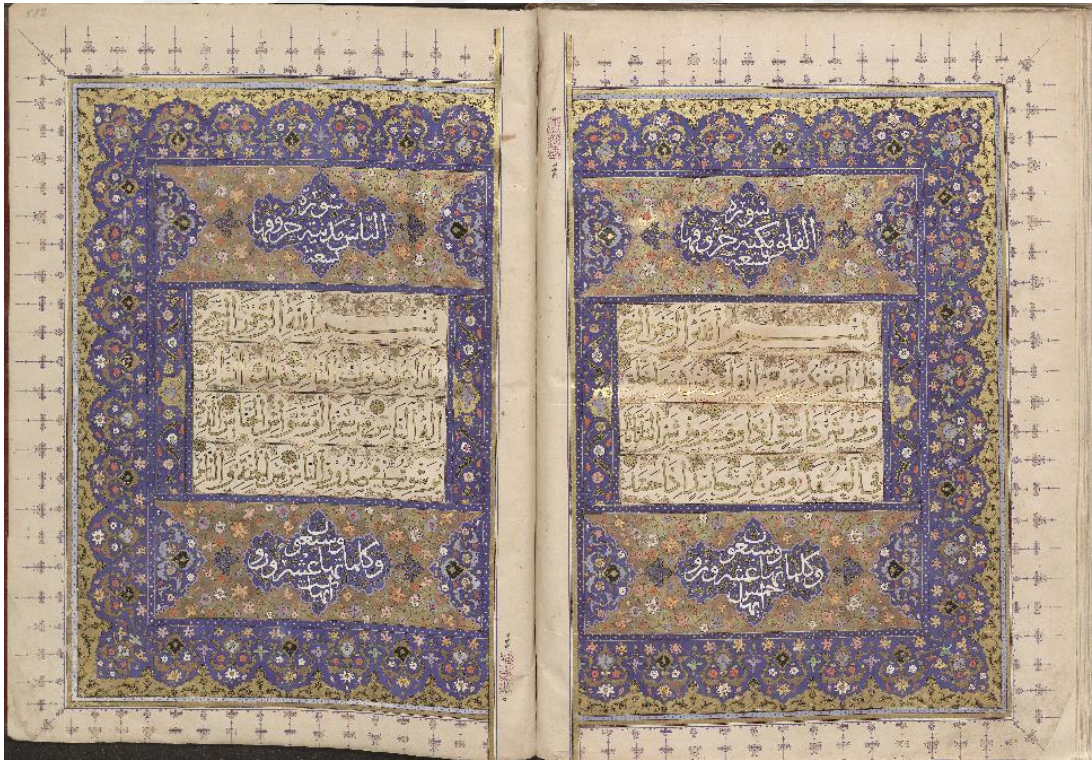 سوره
الفلق مكيه حروفها
تسعه
بسم الله الرحمن الرحيم
قل اعوذ برب الفلق من شر ما خلق
ومن شر غاسق اذا وقب ومن شر النفاثات
في العقد ومن شر حاسد اذا حسد
وسبعون
وكلماتها عشرون و
خمس
سوره
الناس مدنيه حروفها
تسعه
بسم الله الرحمن الرحيم
قل اعوذ برب الناس ملك الناس
اله الناس من شر الوسواس الخناس الذي
يوسوس في صدور الناس من الجنة والناس
وسبعون
وكلماتها عشرون و